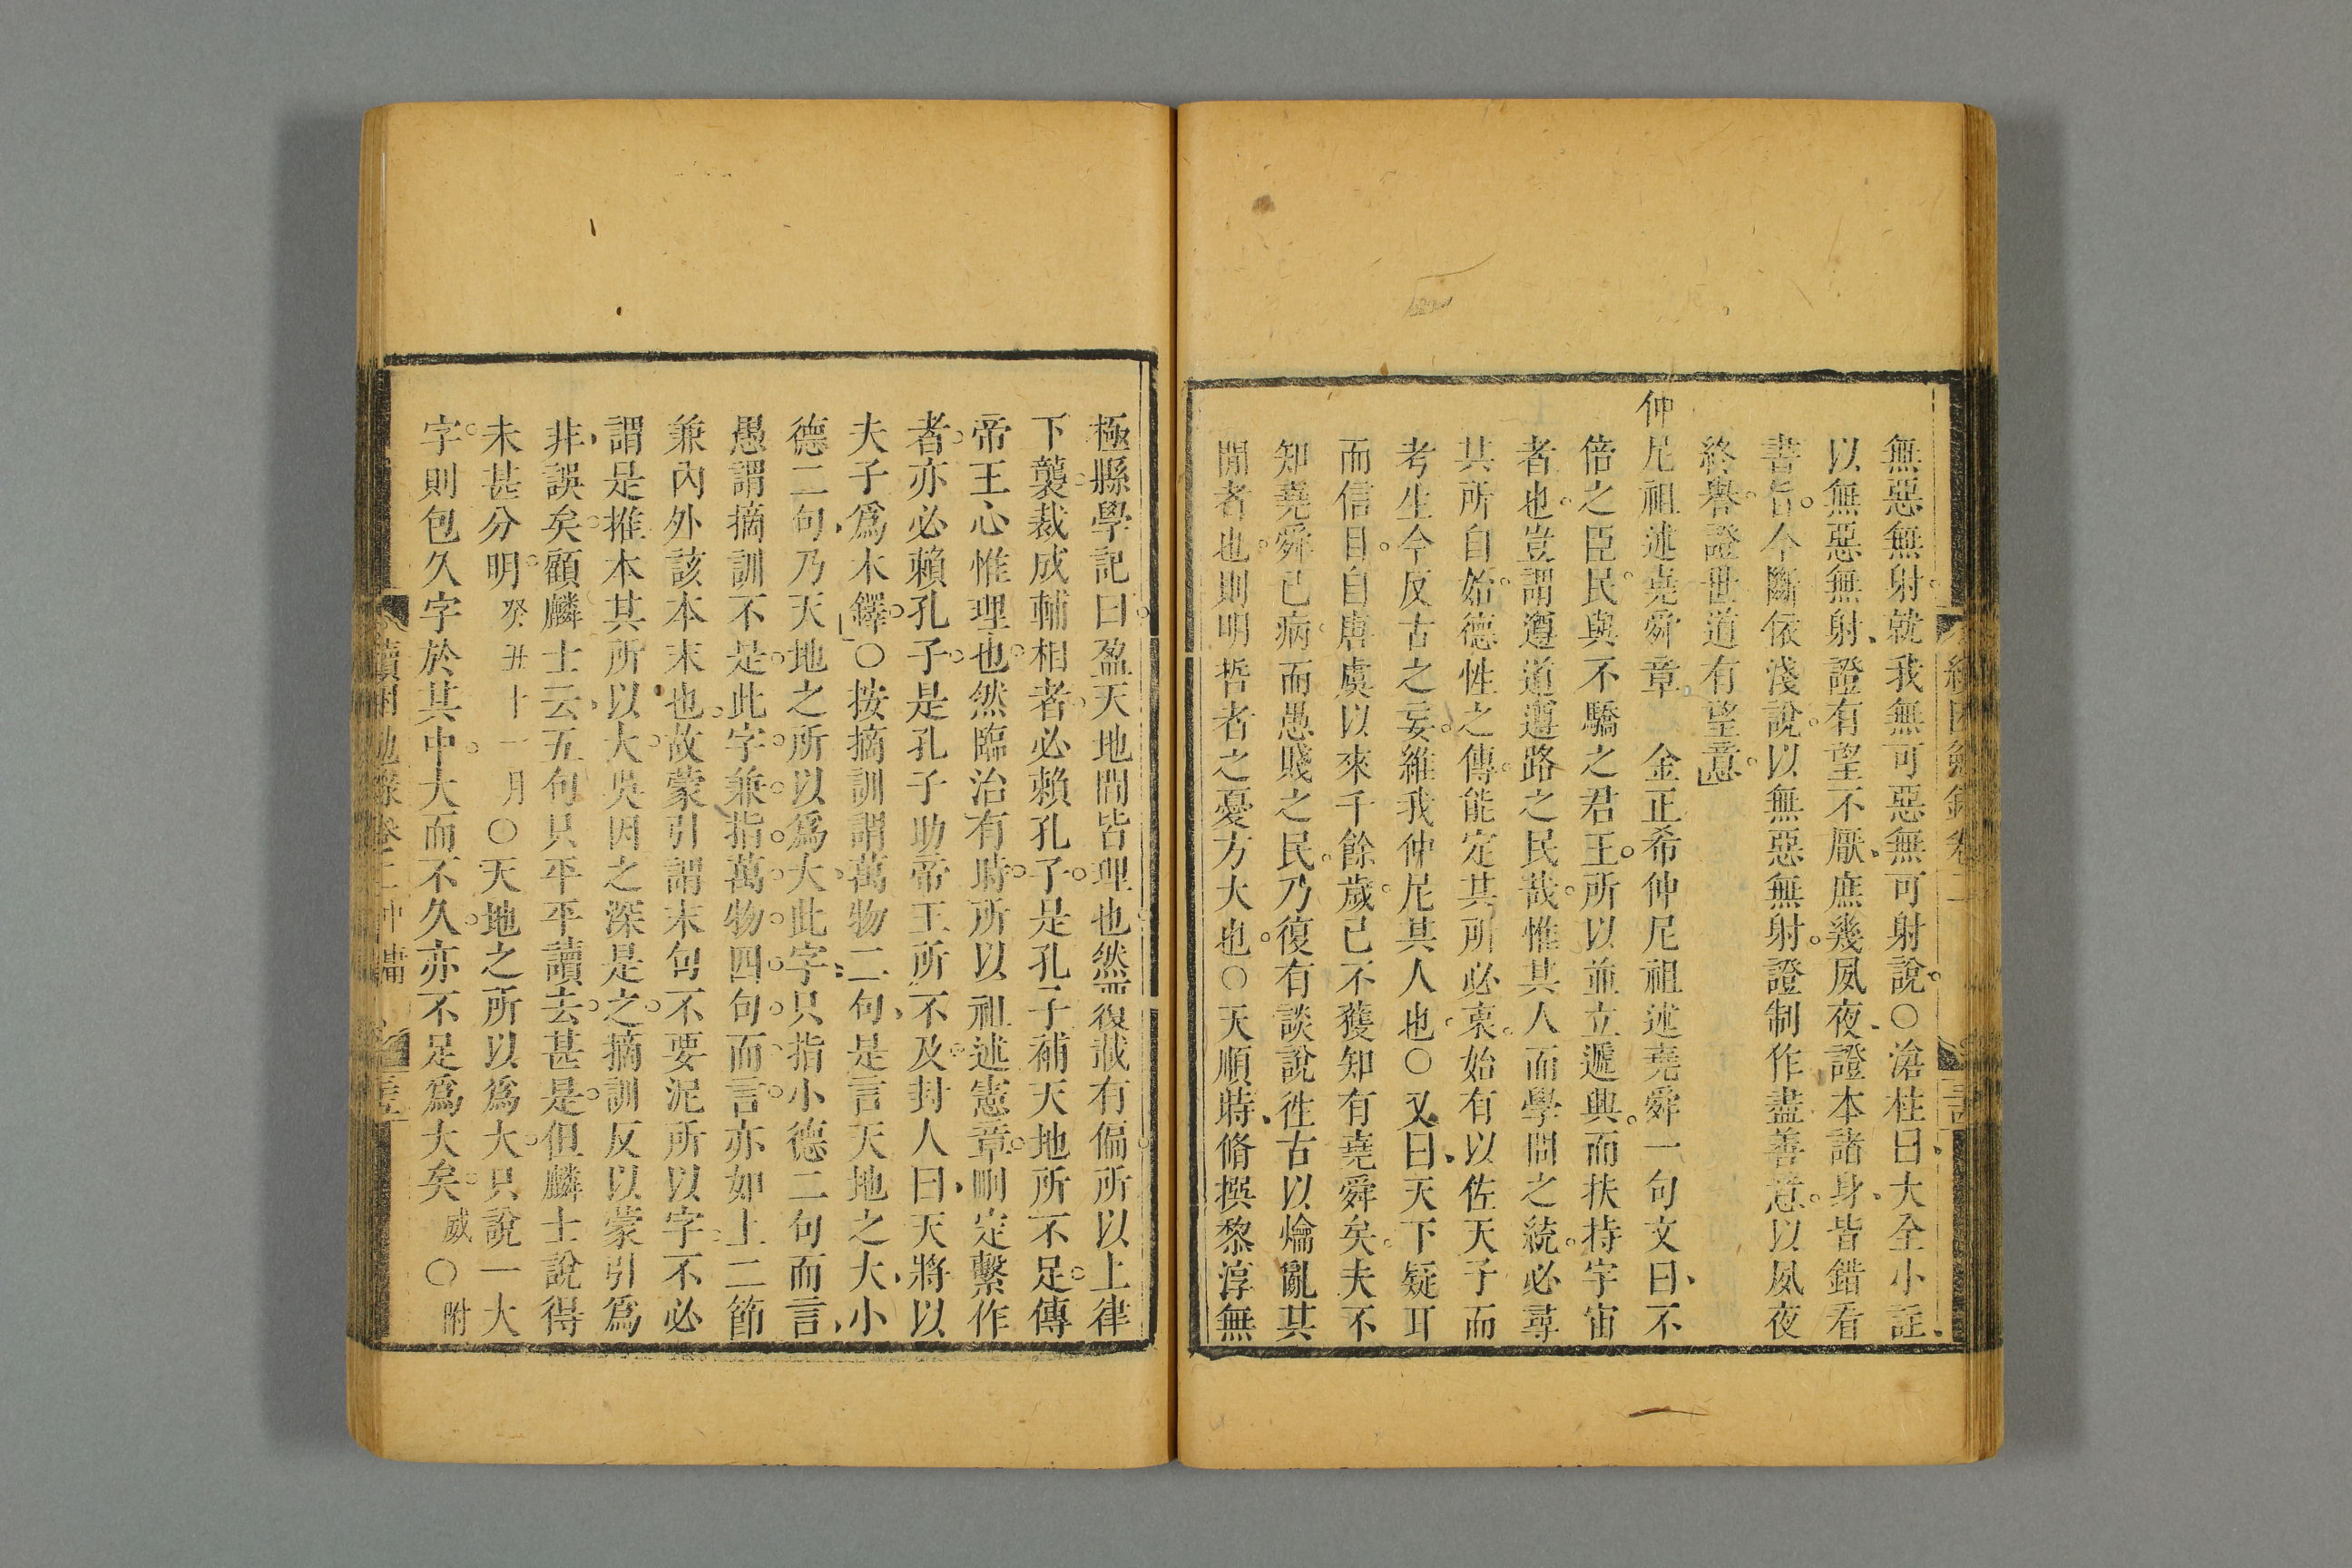 無惡無射就我無可惡無可射說○滄柱曰大全小註
以無惡無射證有望不厭庶幾夙夜證本諸身皆錯看
書旨今斷依淺說以無惡無射證制作盡善意以夙夜
終譽證世道有望意
仲尼祖述堯舜章 金正希仲尼祖述堯舜一句文曰不
倍之臣民與不驕之君王所以並立遞興而扶持宇宙
者也豈謂遵道遵路之民哉惟其人而學問之統必尋
其所自始德性之傳能定其所必衷始有以佐天子而
考生今反古之妄維我仲尼其人也○又曰天下疑耳
而信目自唐虞以來千餘歲已不獲知有堯舜矣夫不
知堯舜已病而愚賤之民乃復有談說徃古以爚亂其
間者也則明哲者之憂方大也○天順蒔脩撰黎淳無
極縣學記曰盈天地間皆理也然覆蓛有偏所以上律
下襲裁成輔相者必賴孔子是孔子補天地所不足傳
帝王心惟理也然臨治有時所以祖述憲章刪定繫作
者亦必賴孔子是孔子助帝王所不及封人曰天將以
夫子爲木鐸○按摘訓謂萬物二句是言天地之大小
德二句乃天地之所以爲大此字只指小德二句而言
愚謂摘訓不是此字兼指萬物四句而言亦如上二節
兼內外該本末也故蒙引謂末句不要泥所以字不必
謂是推本其所以大吳因之深是之摘訓反以蒙引爲
非誤矣顧麟士云五句只平平讀去甚是但麟士說得
未甚分明癸丑十一月○天地之所以爲大只說一大
字則包久字於其中大而不久亦不足爲大矣威○附
讀困勉錄卷二 中庸